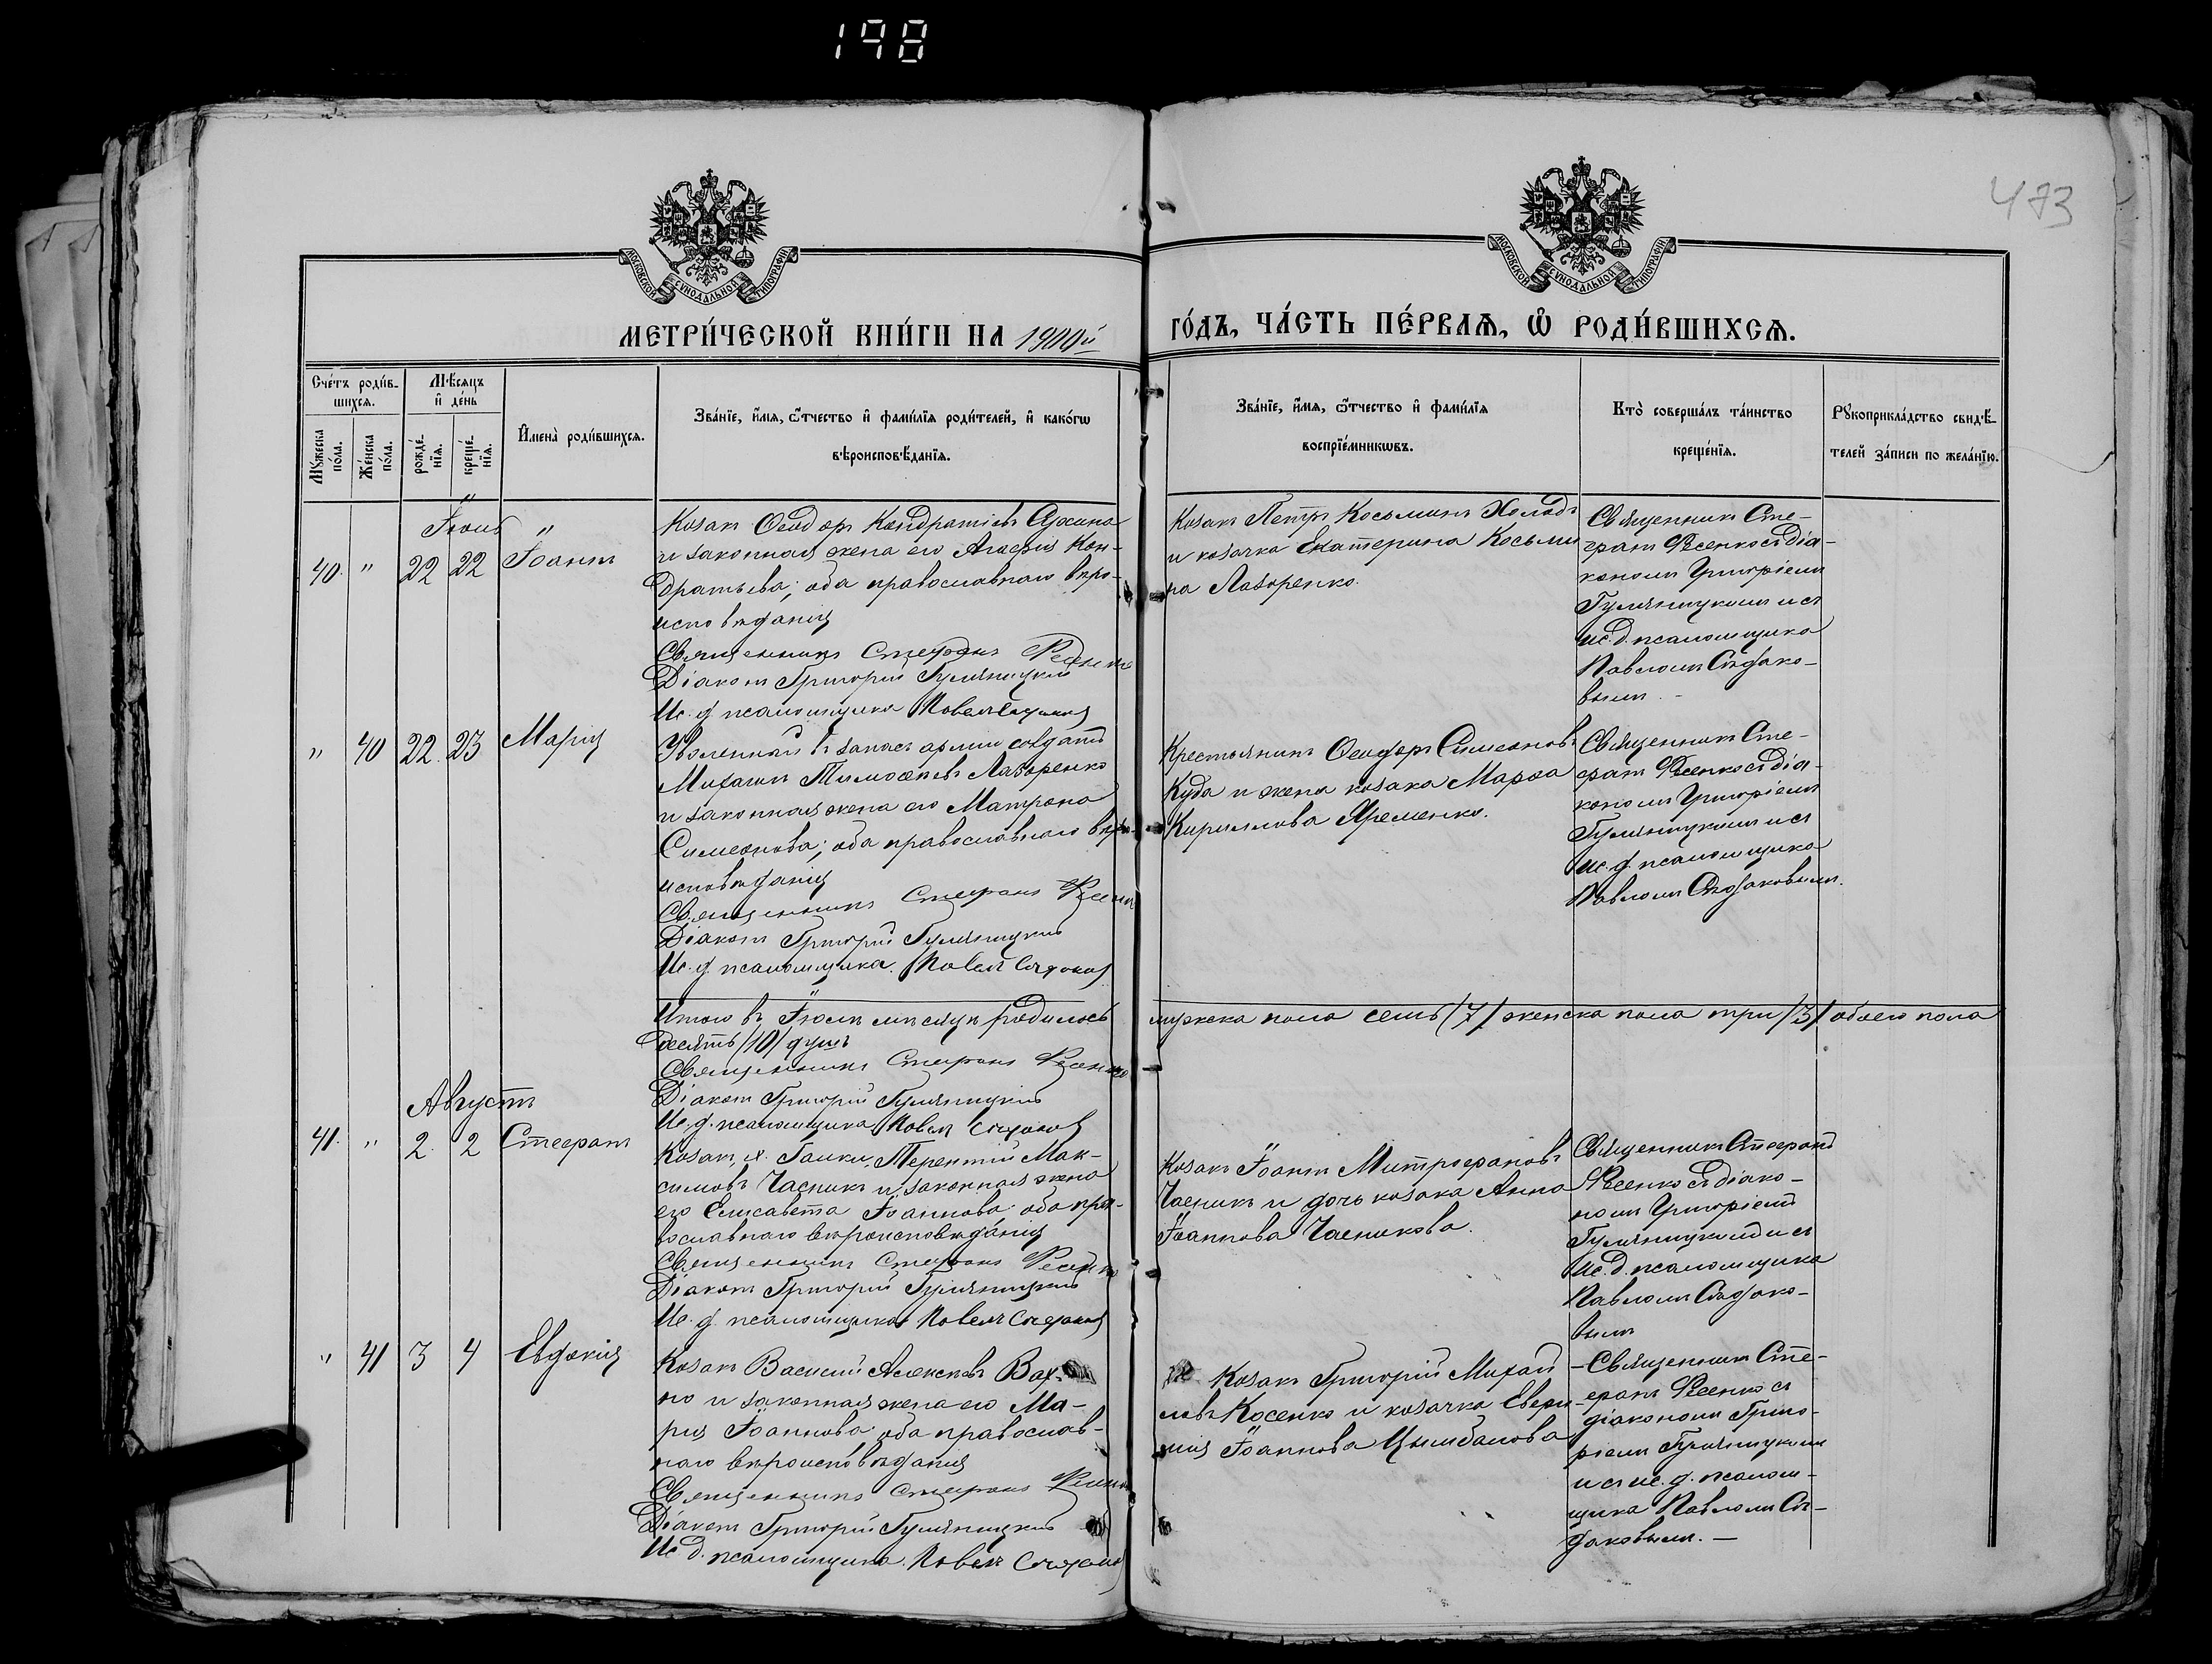 198
473
МОСКОВСКОЙ СУНОДАЛЬНОЙ ТИПОГРАФІИ
МОСКОВСКОЙ СУНОДАЛЬНОЙ ТИПОГРАФІИ
МЕТРИ́ЧЕСКОЙ КНИ́ГИ НА 1900й ГО́ДЪ, ЧА́СТЬ ПЕ́РВАѦ, Ѡ҆ РОДИ́ВШИХСѦ.
Сче́тъ роди́в-
шихсѧ.
Мꙋ́жеска по́ла.
Же́нска по́ла.
Мѣ́сяцъ
и҆ де́нь
рожде́-
нїѧ.
креще́-
нїѧ.
И҆мена̀ роди́вшихсѧ.
Зва́нїе, и҆́мѧ, ѻ҆́тчество и҆ фами́лїѧ роди́телей, и҆ како́гѡ
вѣроисповѣ́данїѧ.
Зва́нїе, и҆́мѧ, ѻ҆́тчество и҆ фами́лїѧ
воспрїе́мникѡвъ.
Кто̀ соверша́лъ та́инство
креще́нїѧ.
Рꙋкоприкла́дство свидѣ́-
телей за́писи по жела́нїю.
Іюль
40. " 22 22 Іоаннъ
Козакъ Ѳеодоръ Кондратіевъ
и законная жена его Агафія Кон-
дратьева; оба православнаго вѣро-
исповѣданія
Священникъ Стефанъ Ѳесенко
Діаконъ Григорій Гуляницкій
Ис. д. псаломщика Павелъ Сѣдаковъ
Козакъ Петръ Косьминъ Холодъ
и козачка Екатерина Косьми
на Лазоренко.
Священникъ Сте-
фанъ Ѳесенко съ діа-
кономъ Григоріемъ
Гуляницкимъ и съ
ис. д. псаломщика
Павломъ Сѣдако-
вымъ. -
" 40 22. 23 Марія
Уволенный въ запасъ арміи солдатъ
Михаилъ Тимоѳеевъ Лазоренко
и законная жена его Матрона
Симеонова; оба православнаго вѣро-
исповѣданія
Священникъ Стефанъ Ѳесенко
Діаконъ Григорій Гуляницкій
Ис. д. псаломщика. Павелъ Сѣдаковъ
Крестьянинъ Ѳеодоръ Симеоновъ
Куда и жена козака Марѳа
Кириллова Яременко.
Священникъ Сте-
фанъ Ѳесенко съ діа-
кономъ Григоріемъ
Гуляницкимъ и съ
ис. д. псаломщика
Павломъ Сѣдаковымъ.
Итого въ Іюлѣ мѣсяцѣ родилось мужеска пола семь /7/ женска пола три /3/ обоего пола
десять /10/ душъ
Священникъ Стефанъ Ѳесенко
Діаконъ Григорій Гуляницкій
Ис. д. псаломщика Павелъ Сѣдаковъ
Августъ
41. " 2. 2 Стефанъ
Козакъ, х. Гайки, Терентій Мак-
симовъ Часникъ и законная жена
его Елисавета Іоаннова оба пра-
вославнаго вѣроисповѣданія
Священникъ Стефанъ Ѳесенко
Діаконъ Григорій Гуляницкій
Ис. д. псаломщика Павелъ Сѣдаковъ
Козакъ Іоаннъ Митрофановъ
Часникъ и дочь козака Анна
Іоаннова Часникова.
Священникъ Стефанъ
Ѳесенко съ діако-
номъ Григоріемъ
Гуляницкимъ и съ
ис. д. псаломщика
Павломъ Сѣдако-
вымъ
" 41 3 4 Евдокія
Козакъ Василій Алексѣевъ Вах-
но и законная жена его Ма-
рія Іоаннова оба православ-
наго вѣроисповѣданія
Священникъ Стефанъ Ѳесенко
Діаконъ Григорій Гуляницкій
Ис. д. псаломщика. Павелъ Сѣдаковъ
Козакъ Григорій Михай-
ловъ Косенко и козачка Евфи-
мія Іоаннова Цымбалова
Священникъ Сте-
фанъ Ѳесенко съ
діакономъ Григо-
ріемъ Гуляницкимъ
и съ ис. д. псалом-
щика Павломъ Сѣ-
даковымъ. —